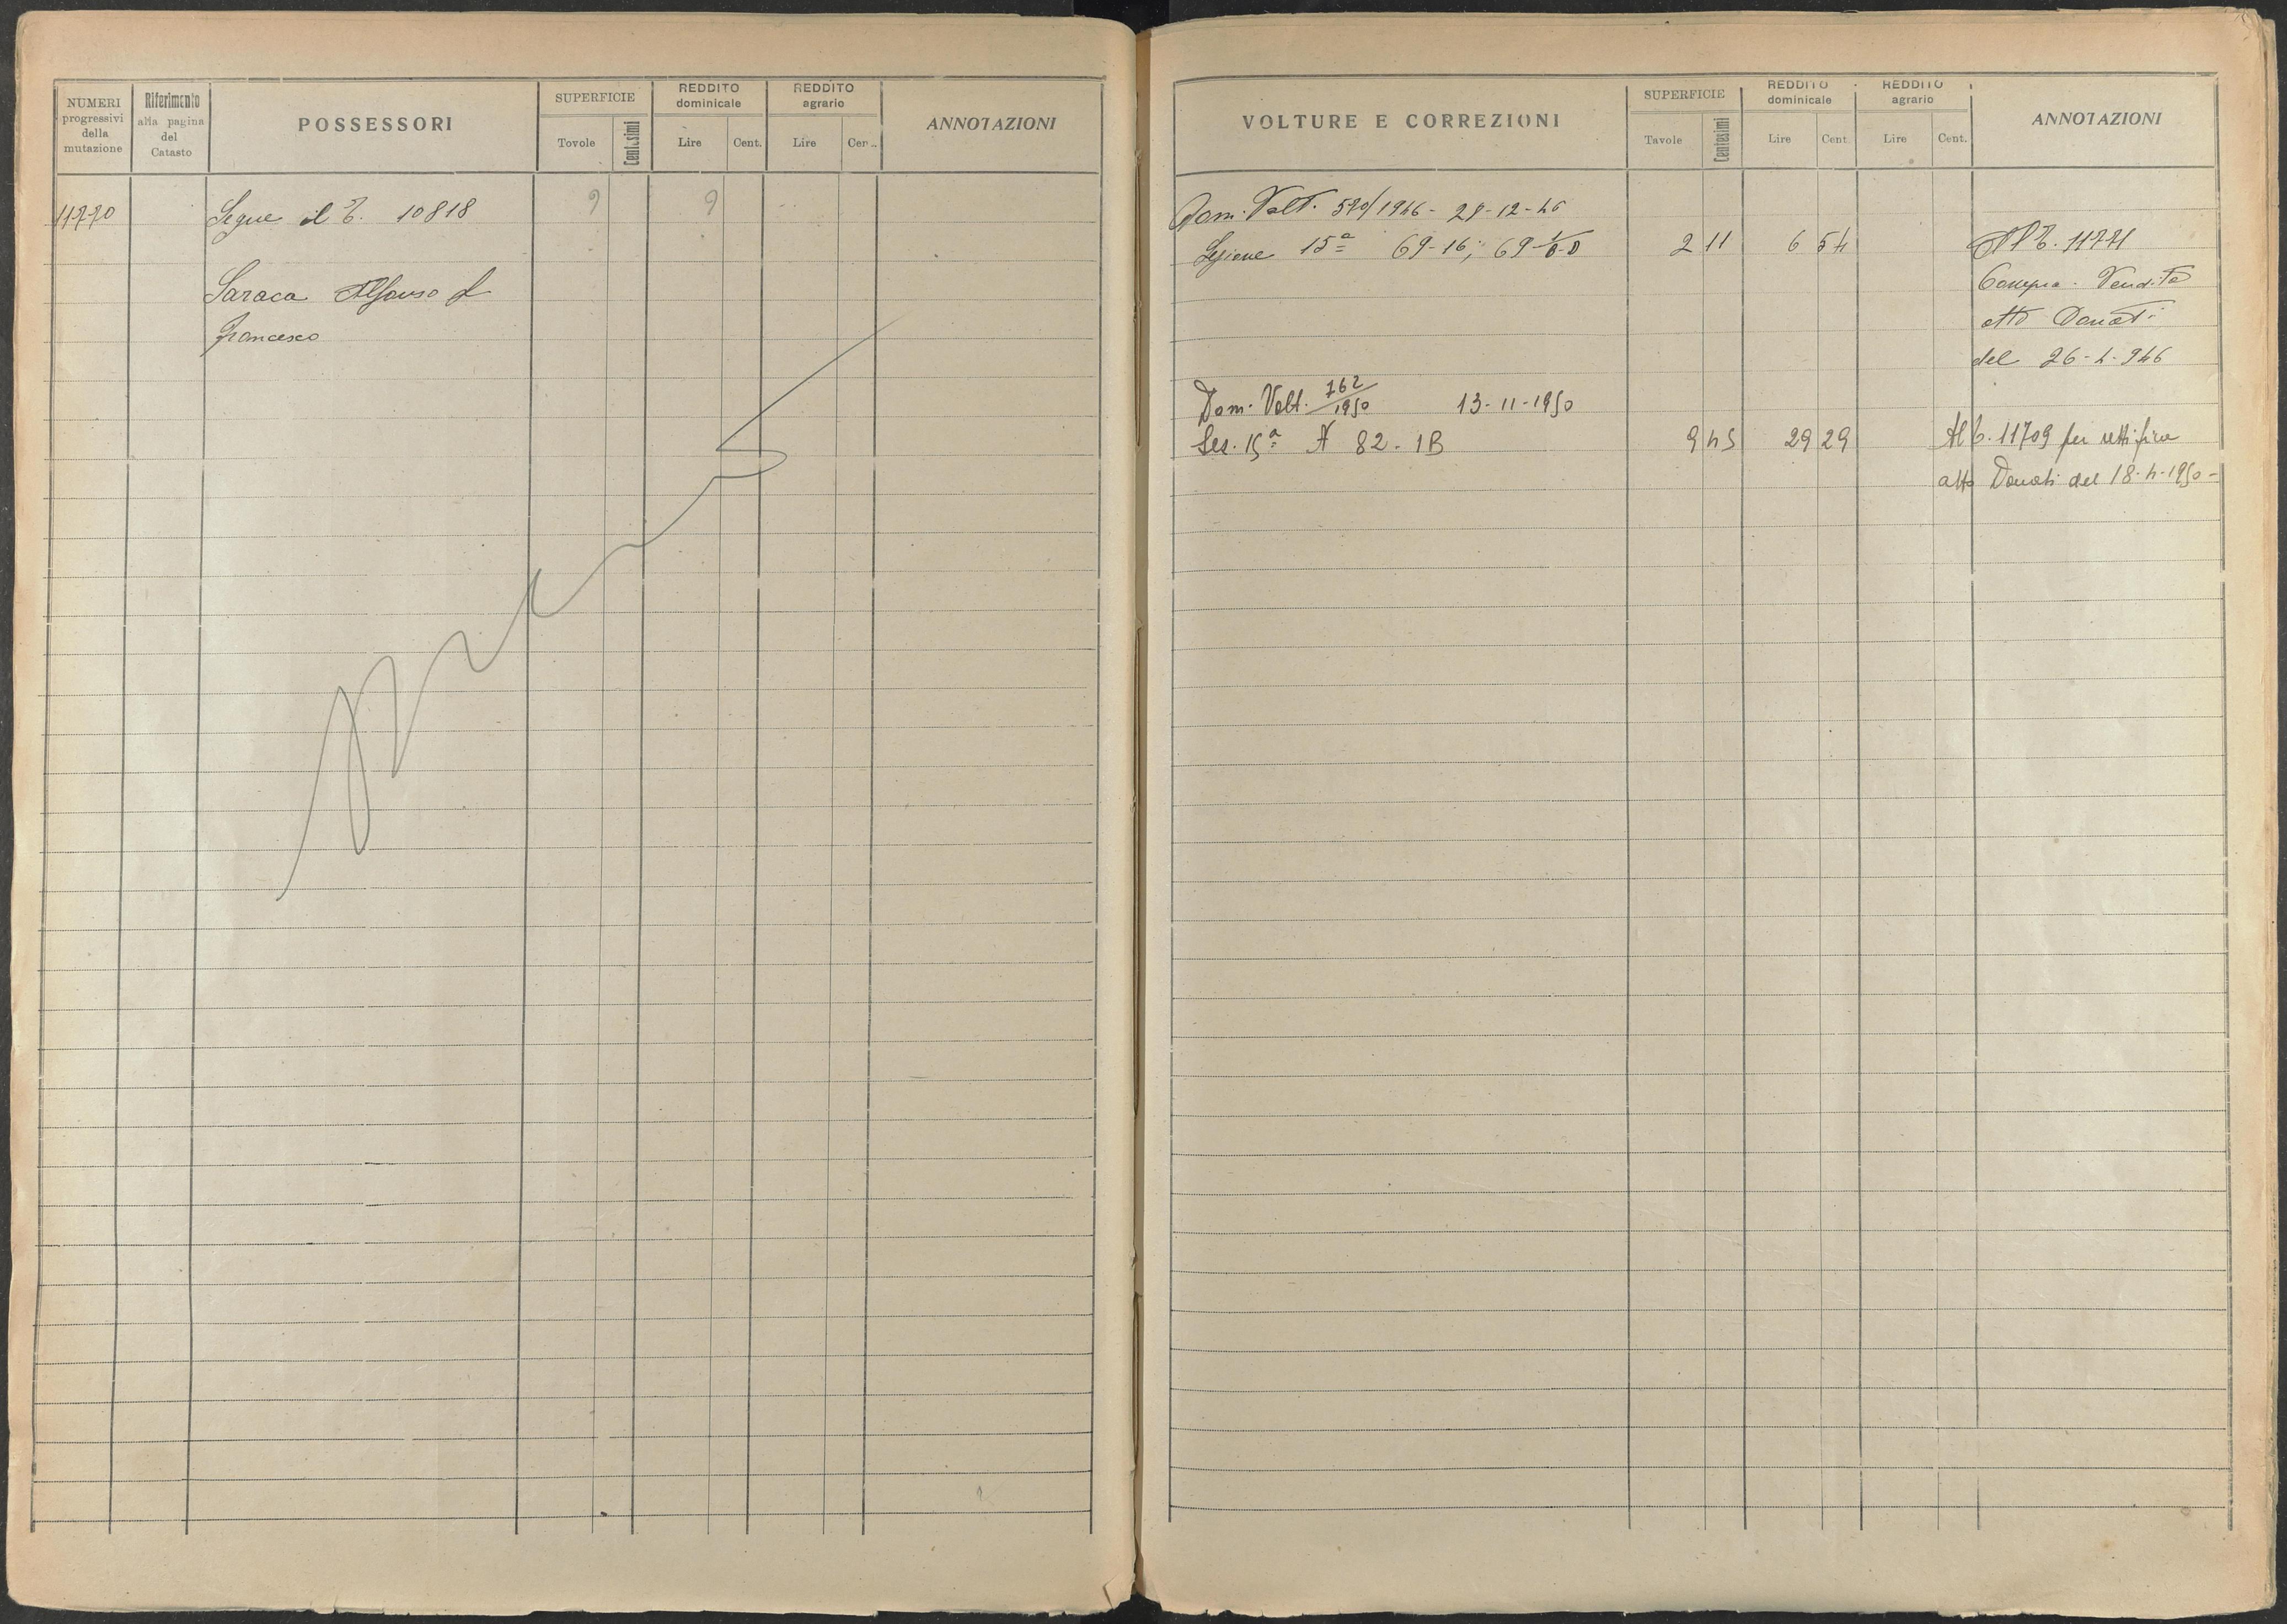 NUMERI progressivi della mutazione
Riferimento alla pagina del Catasto
POSSESSORI
SUPERFICIE
Tovole
Centesimi
REDDITO dominicale
Lire
Cent.
REDDITO agrario
Lire
Cen..
ANNOTAZIONI
11770
Segue il T. 10818
?
?
Saraca Alfonso f
Francesco
VOLTURE E CORREZIONI
SUPERFICIE
Tavole
Centesimi
REDDITO dominicale
Lire
Cent.
REDDITO agrario
Lire
Cent.
ANNOTAZIONI
Dom. Volt. 570/1946 - 28-12-46
Sezione 15ª 69-16; 69-
2 11
6 54
Al T. 11771
Compra-Vendita
atto Donati
del 26-4-946
Dom. Volt. 762/1950 13-11-1950
Sez. 15ª N 82-1B
9 45
29 29
Al T. 11709 per rettifica
atto Donati del 18-4-1950-